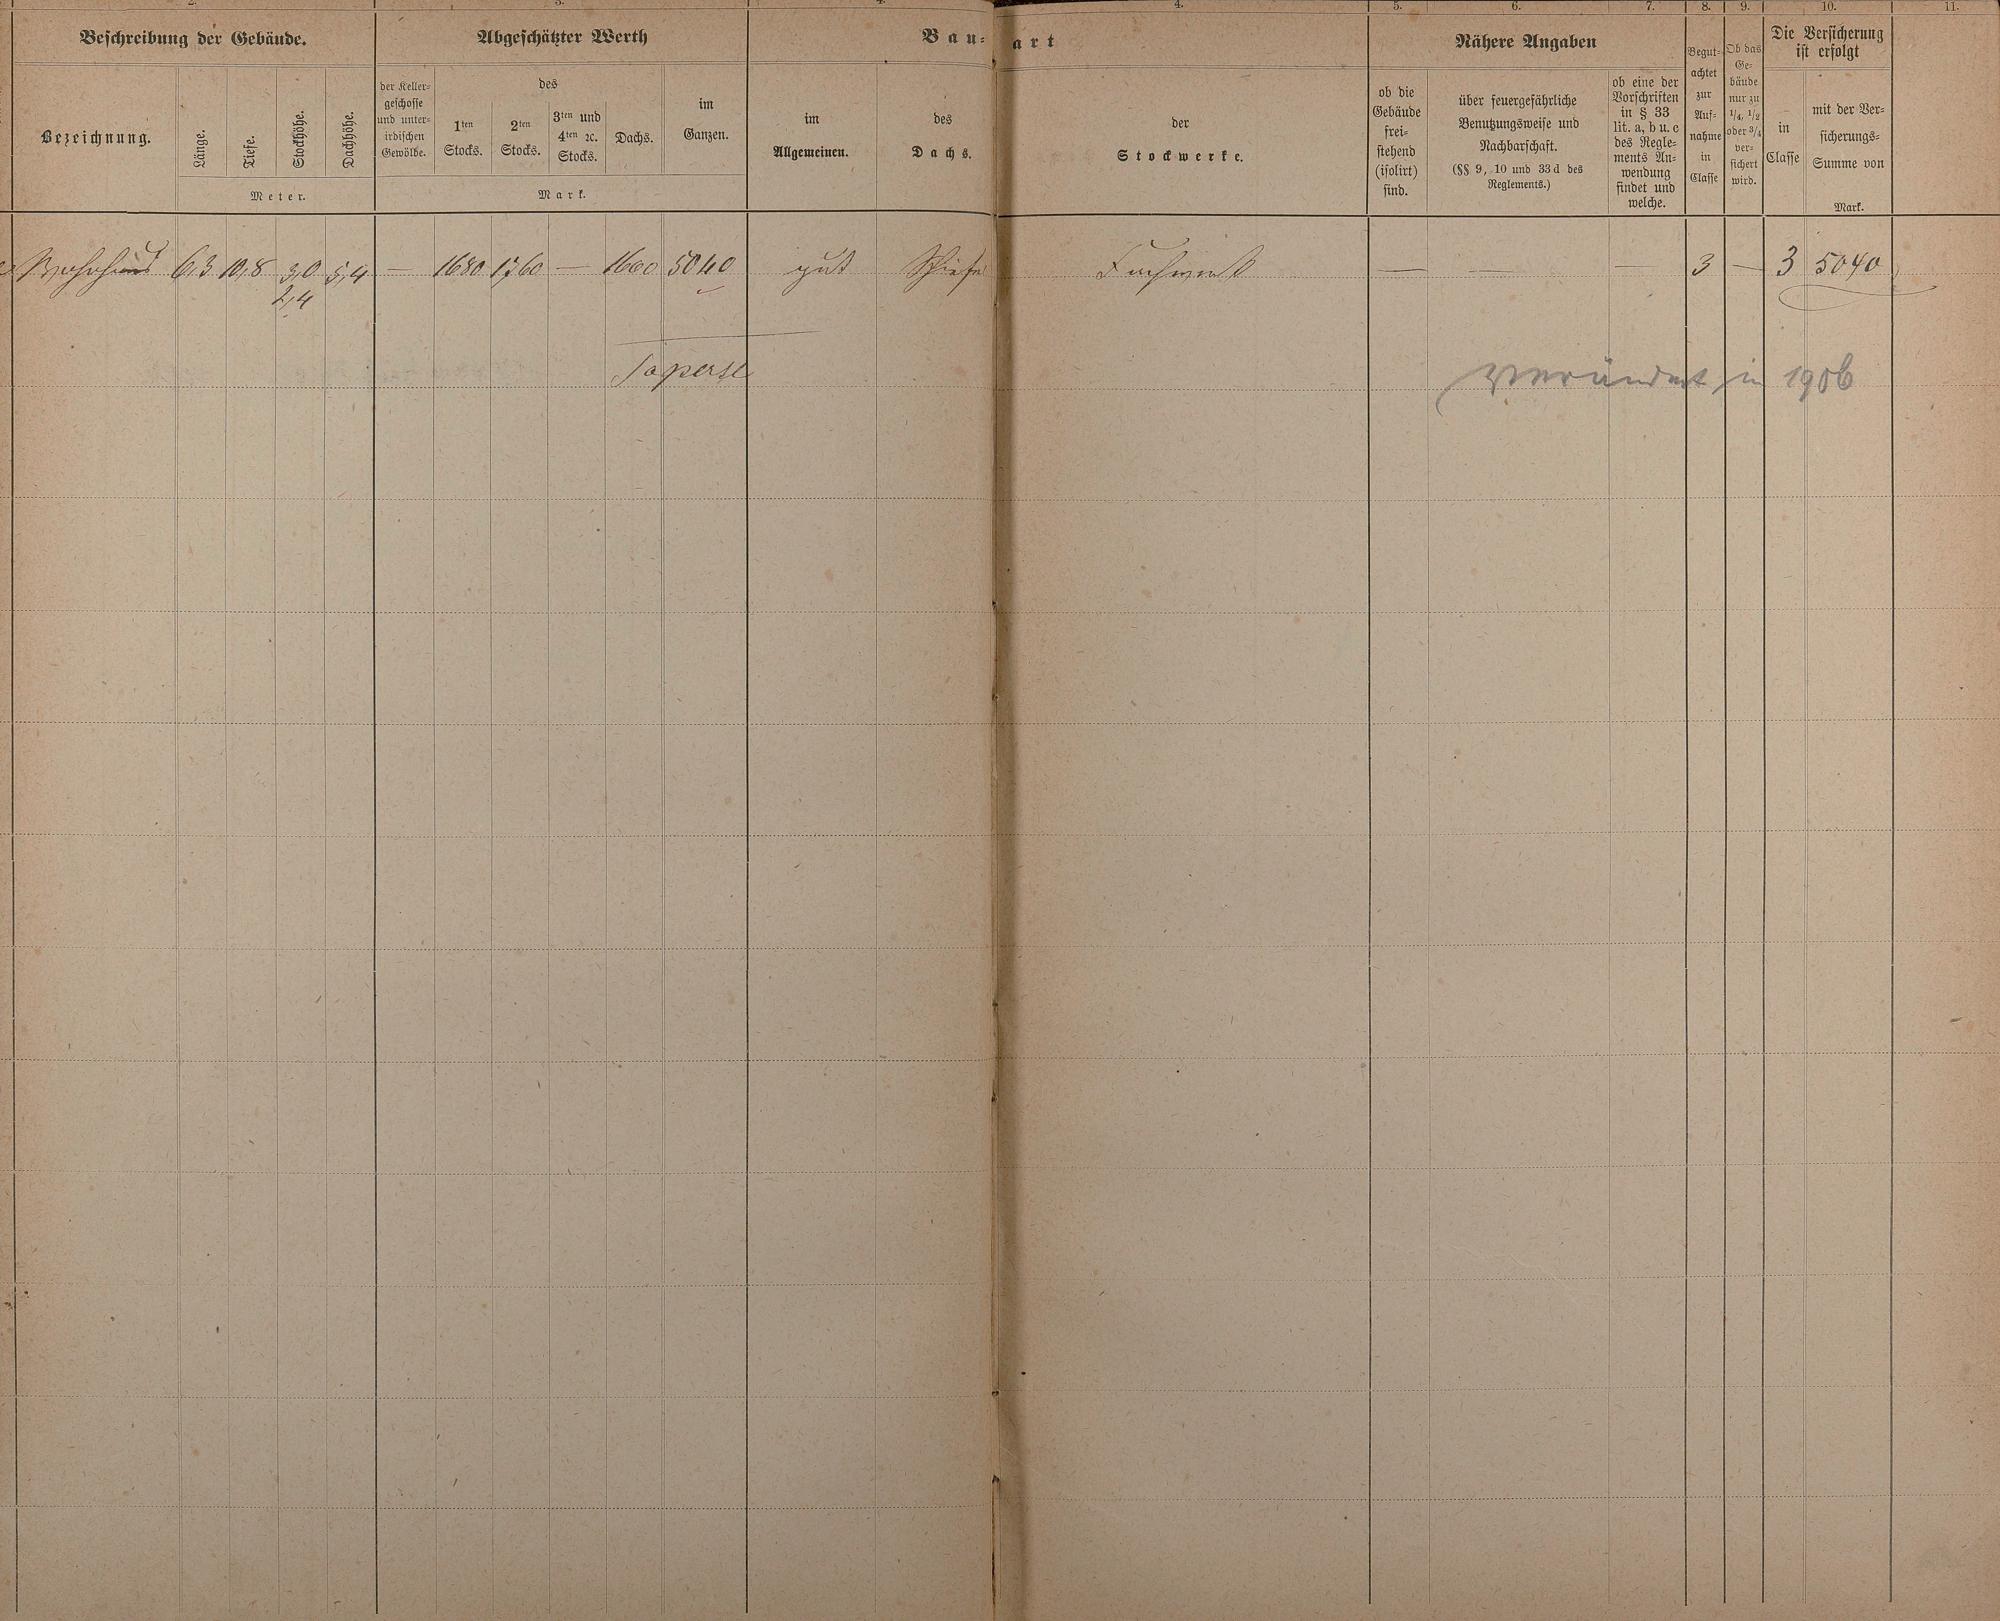 2. 3. 4. 4. 5. 6. 7. 8. 9. 10. 11.
Beschreibung der Gebäude.
Abgeschätzter Werth
Bau-
art
Nähere Angaben
Begut-
achtet
zur
Auf-
nahme
in
Classe
Ob das
Ge-
bäude
nur zu
1/4, 1/2
oder 3/4
ver-
sichert
wird.
Die Versicherung
ist erfolgt
Bezeichnung.
Länge.
Tiefe.
Stockhöhe.
Dachhöhe.
Meter.
der Keller-
geschosse
und unter-
irdischen
Gewölbe.
des
1ten
Stocks.
2ten
Stocks.
3ten und
4ten ꝛc.
Stocks.
Dachs.
im
Ganzen.
Mark.
im
Allgemeinen.
des
Dachs.
der
Stockwerke.
ob die
Gebäude
frei-
stehend
(isolirt)
sind.
über feuergefährliche
Benutzungsweise und
Nachbarschaft.
(§§ 9, 10 und 33 d des
Reglements.)
ob eine der
Vorschriften
in § 33
lit. a, b u. c
des Regle-
ments An-
wendung
findet und
welche.
in
Classe
mit der Ver-
sicherungs-
Summe von
Mark.
Wohnhaus 6,3 10,8 3,0 5,4 — 1680 1760 — 1600 5040 gut Schiefer Fachwerk — — — 3 — 3 5040
2,4
verändert in 1906